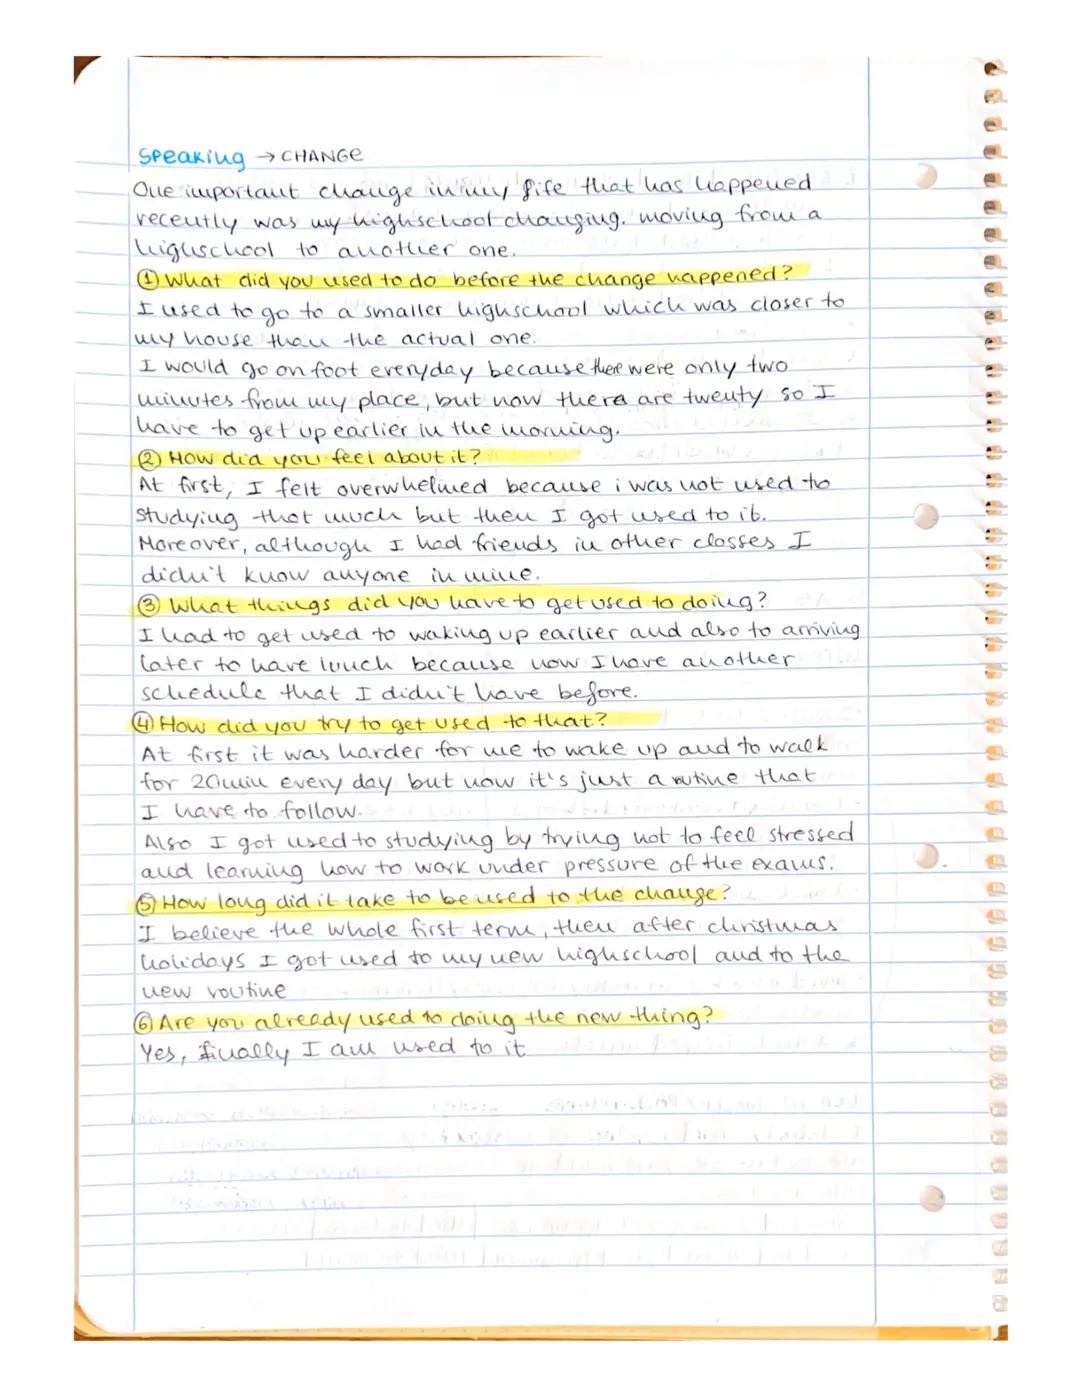 Speaking → CHANGE
One important change in my life that has happened
recently was my highschool changing. moving from a
highschool to another one.
① What did you used to do before the change happened?
I used to go to a smaller highschool which was closer to
my house than the actual one.
I would go on foot everyday because there were only two
minutes from my place, but now there are twenty so I
have to get up earlier in the morning.
② How did you feel about it?
At first, I felt overwhelmed because i was not used to
studying that much but then I got used to it.
Moreover, although I had friends in other classes I
didn't know anyone in mine.
③ What things did you have to get used to doing?
I had to get used to waking up earlier and also to arriving
later to have lunch because now I have another
schedule that I didn't have before.
④ How did you try to get used to that?
At first it was harder for me to wake up and to walk
for 20min every day but now it's just a rutine that
I have to follow.
Also I got used to studying by trying not to feel stressed
and learning how to work under pressure of the exams.
⑤ How long did it take to be used to the change?
I believe the whole first term, then after christmas
holidays I got used to my new highschool and to the
new routine
⑥ Are you already used to doing the new thing?
Yes, finally I am used to it